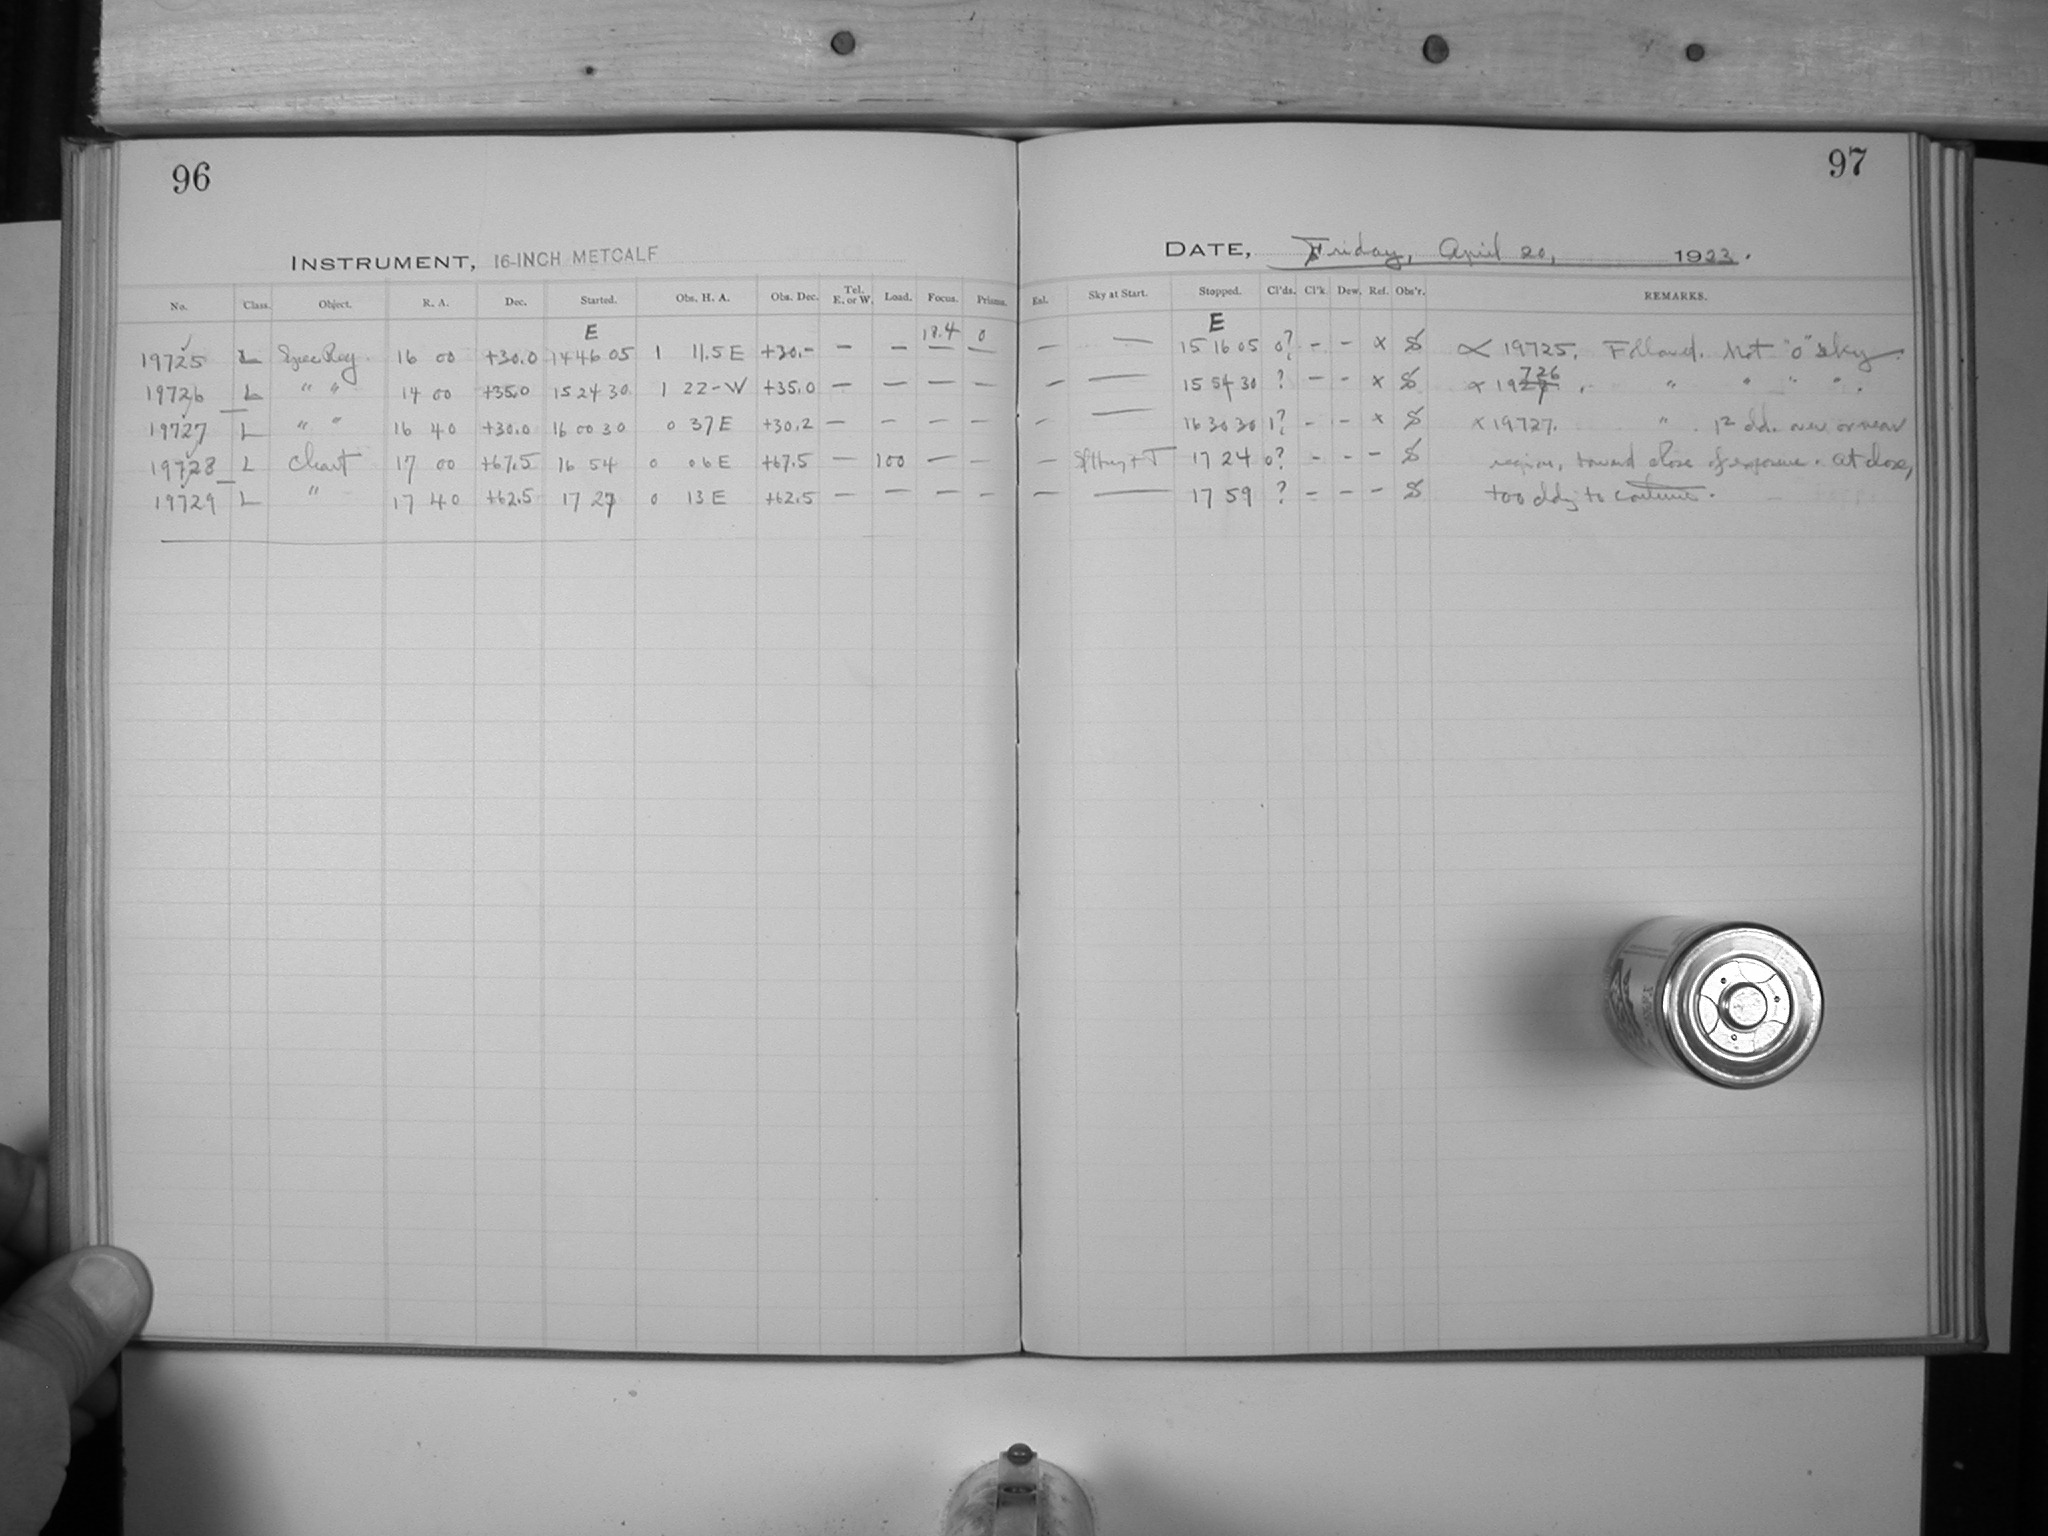 96
97
INSTRUMENT, 16-INCH METCALF
DATE, Friday, April 20, 1923.
No. Class. Object. R. A. Dec. Started. Obs. H. A. Obs. Dec. Tel. E. or W. Load. Focus. Prisms. Sky at Start. Stopped. Cl'ds. Cl'k Dew. Ref. Obs'r. REMARKS.
E 18.4 0 E
19725 L Spec Reg. 16 00 +30.0 14 46 05 1 11.5 E +30.- — — — — — — 15 16 05 0? - - x ∝ 19725. Followed. Not "0" sky.
19726 L " " 14 00 +35.0 15 24 30 1 22-W +35.0 — — — — — — 15 54 30 ? - - x ∝ 19726. " " " ".
19727 L " " 16 40 +30.0 16 00 30 0 37 E +30.2 — — — — — — 16 30 30 1? - - x x 19727. " . over or near
19728 L Chart 17 00 +67.5 16 54 0 06 E +67.5 — 100 — — — 17 24 0? - - - region, toward close of exposure. At close,
19729 L " 17 40 +62.5 17 27 0 13 E +62.5 — — — — — — 17 59 ? - - - too cldy to continue.